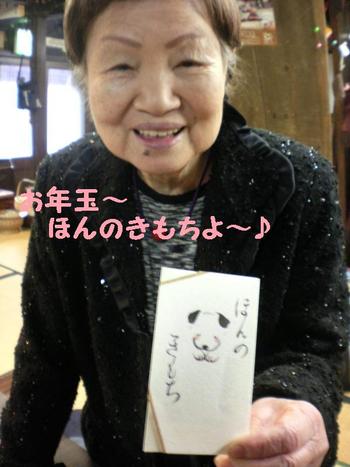 お年玉～
ほんのきもちよ～♪
ほんの
きもち